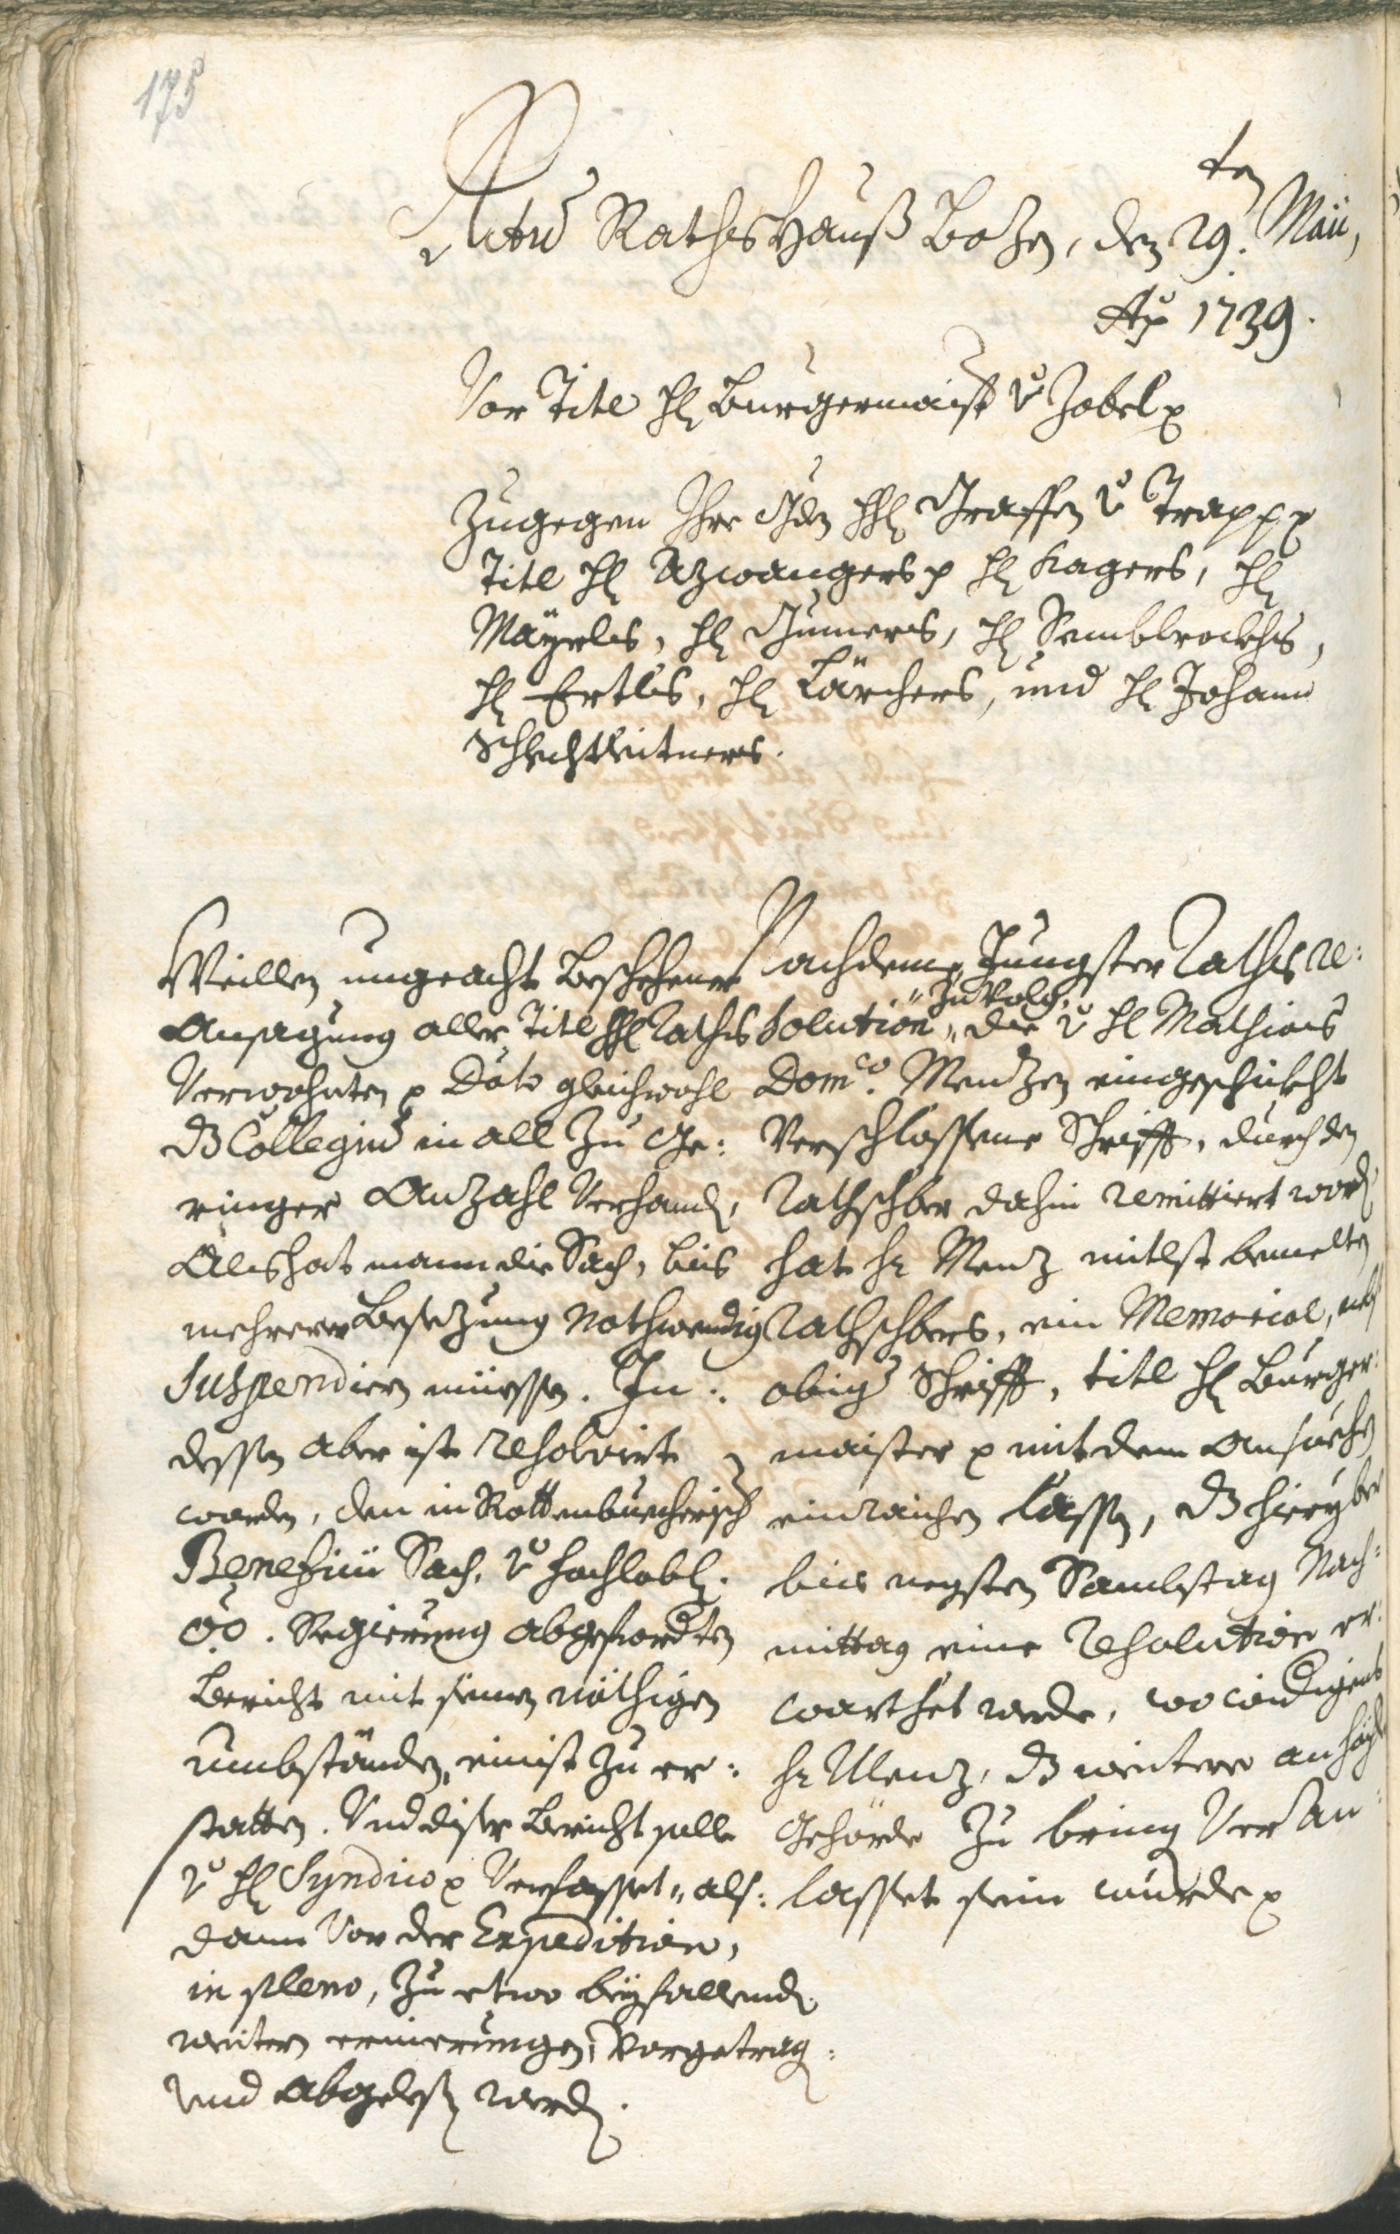 175
Actũ Rathshauß Bozen, den 29.ten Maii,
Ao 1739.
Vor Titl hℓ Burgermaister v Zobel p
Zugegen Ihro Gden hhℓ Graffen v Trapp p
Titl hℓ Azwangers p hℓ Kagers, hℓ
Mayrls, hℓ Gumers, hℓ Semblrockhs,
hℓ Ertls, hℓ Lärchers, und hℓ Johann
Schlechtleitners.
Weillen ungeacht beschehener
Ansagung aller Titl hhℓ Raths
Verwohnten p Dato gleichwohl
dz Collegiũ in all zu ge:
ringer Anzahl verhandℓ,
Als hat mann die Sach, bis
mehrerer besezung nothwendig
suspendiern müessen. In:
dessen aber ist resolvirt
worden, den in Rottenbuecherisch
Beneficii Sach, v hochlobℓ.
OÖ. Regierung abgefordten
Bericht mit seinen nöthigen
umbständen, einist zu er:
statten. Und diser bericht solle
v hℓ Syndico p verfasset, als:
dann vor der Expedition,
in pleno, zu etwo beyfallendℓ
weitern erinerungen, vorgetrag:
und abgelesℓ werdℓ.
Nachdeme Jungster Raths re:
solution, zu volg, die v hℓ Mathias
Domco. Menzen eingeschickht
verschlossene Schrifft, durch den
Rathschbr dahin remittiert wordℓ
hat hr Menz mitlst bemelten
Rathschbers, ein Memorial, nebst
obigr Schrifft, titl hℓ Burger:
maister p mit dem ansuechen
einraichen lassen, dz hieryber
bis negsten Sambstag Nach:
mittag eine resolution er:
warthet werde, wo widrigens
hr Menz, dz weitere an hoche
Gehörde zu bring veran:
lasset sein wurde p